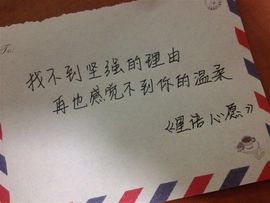 To:
找不到坚强的理由
再也感觉不到你的温柔
《星语心愿》